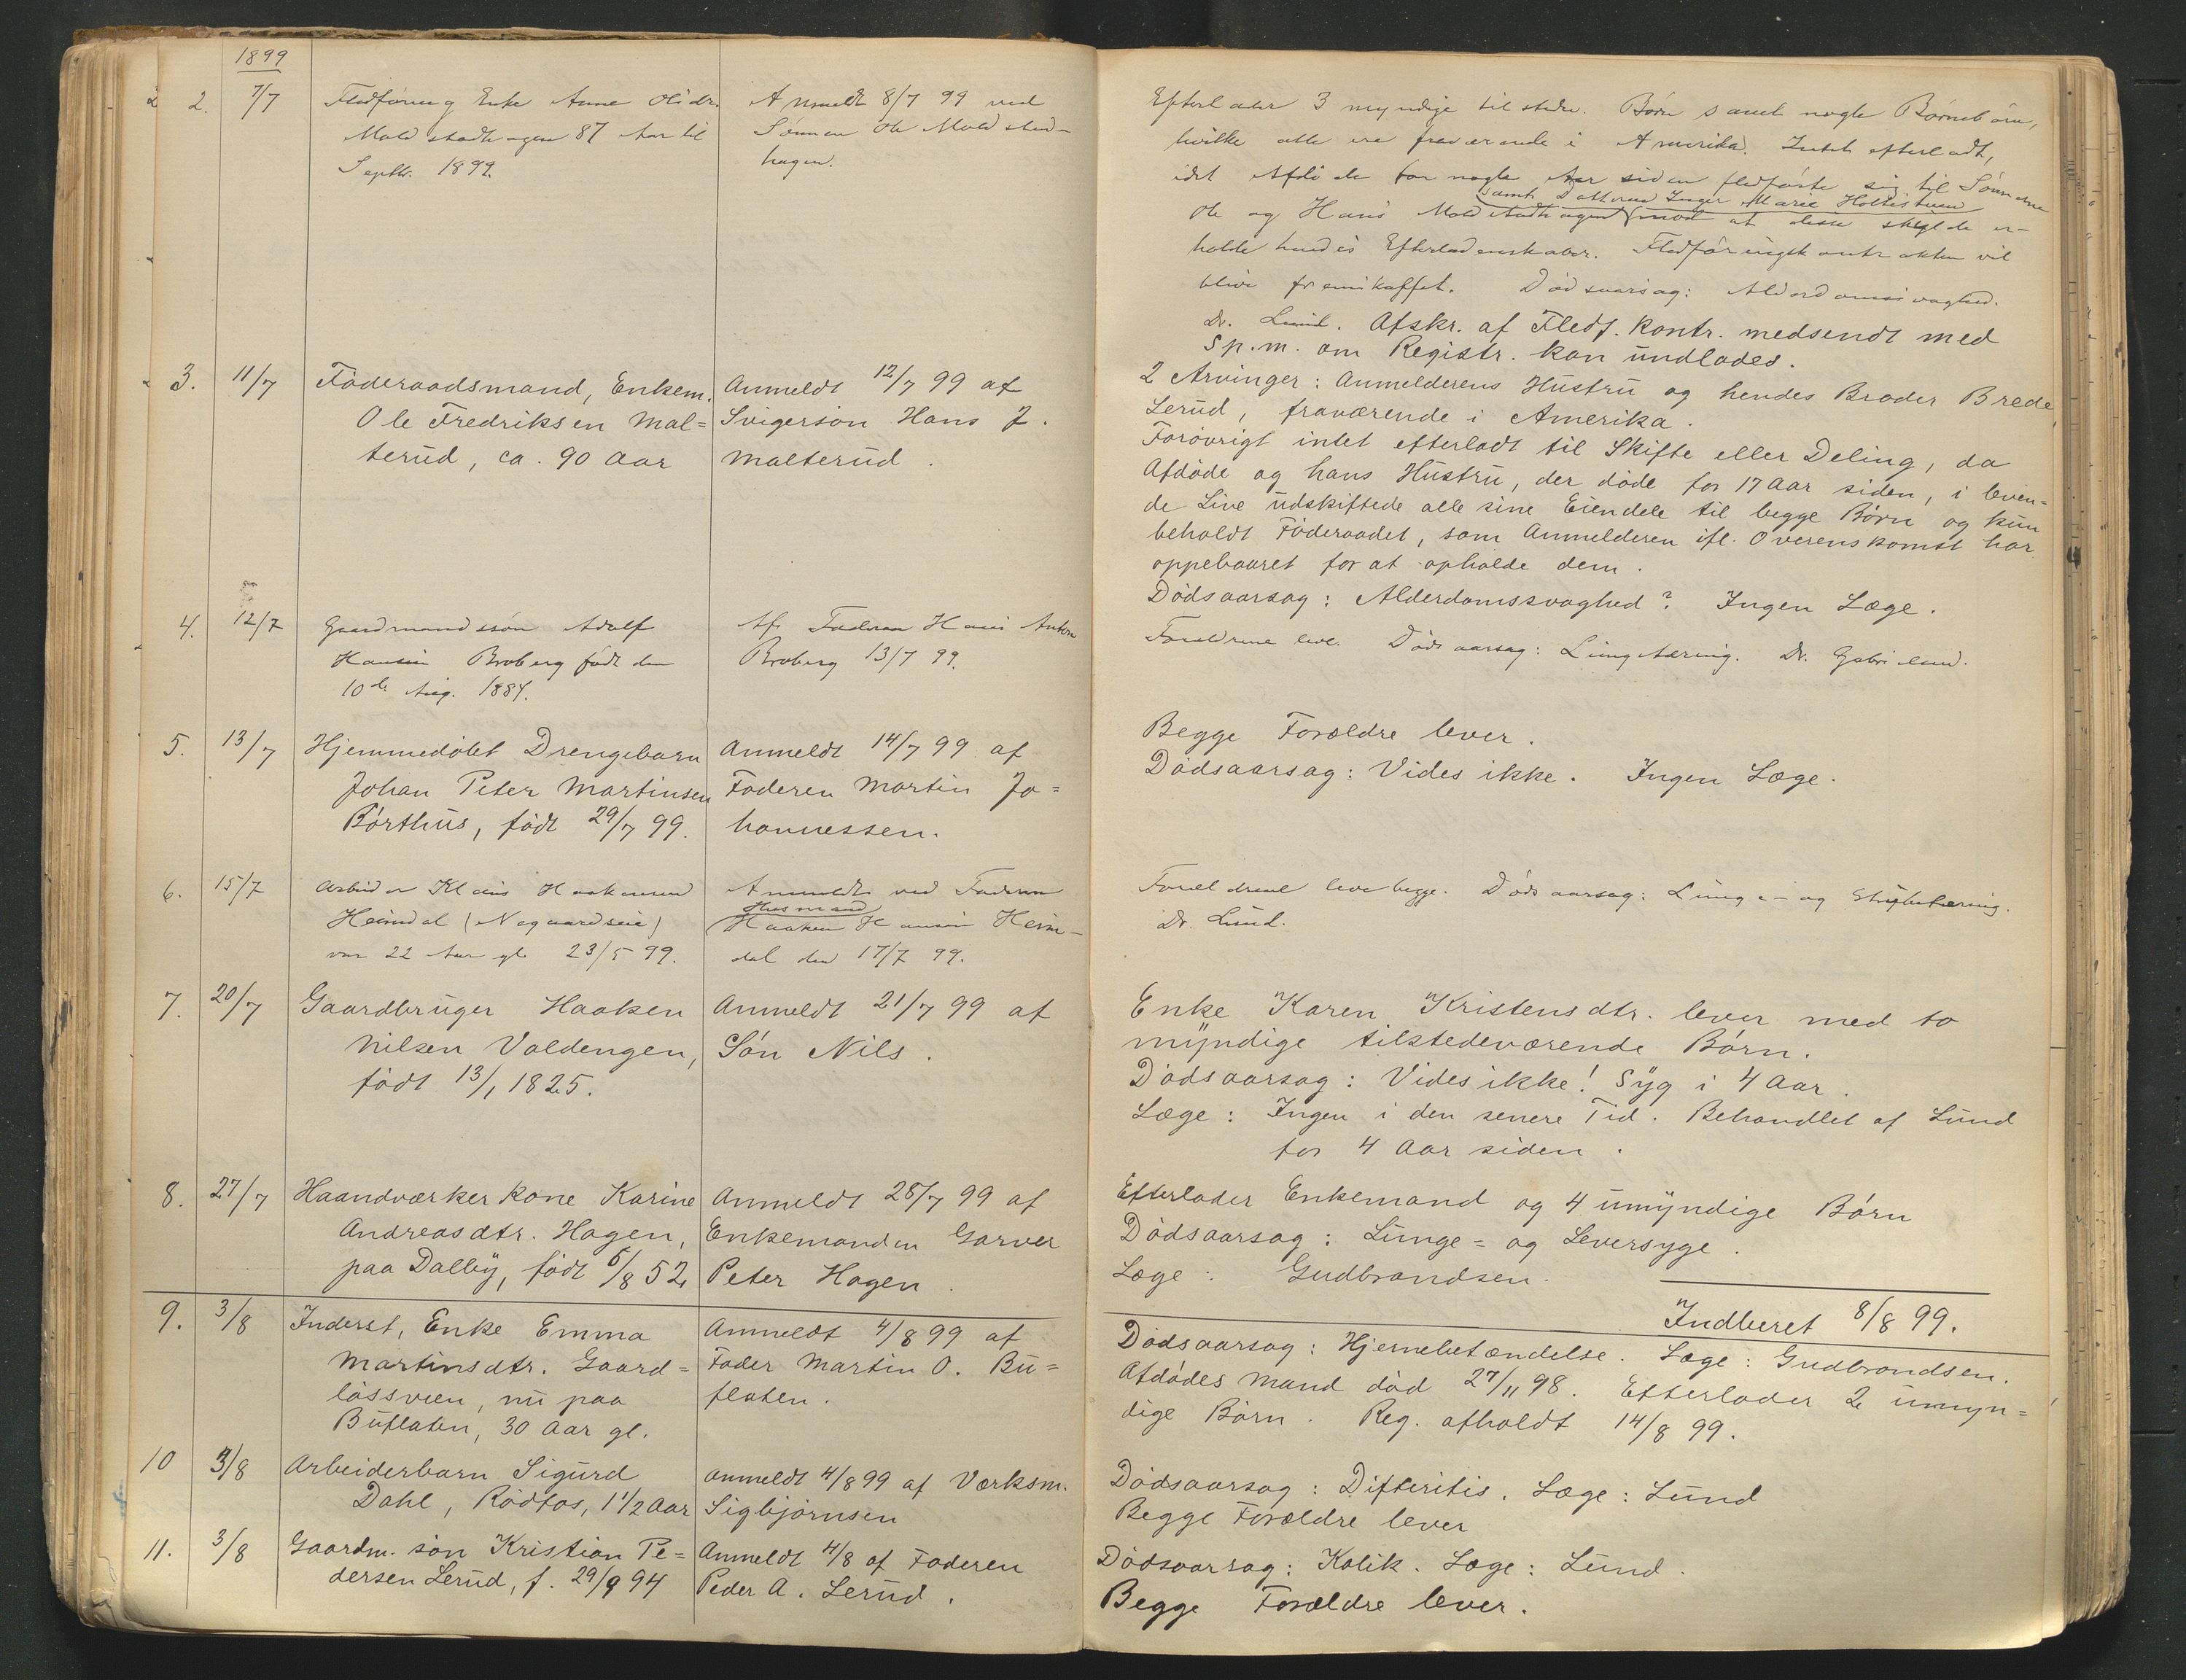 1899
2. 7/7 Fledføring Enke Anne Olsdr. Anmeldt 8/7 99 ved
Moldstadhagen 87 Aar til Sønnen Ole Moldstad-
Septbr. 1899. hagen.
Efterlader 3 myndige tilstedev. Børn samt nogle Børnebørn,
hvilke alle ere fraværende i Amerika. Intet efterladt,
idet Afdøde for nogle Aar siden fledførte sig til Sønnerne
samt Datteren Inger Marie Holtestuen
Ole og Hans Moldstadhagen mod at disse skulde er-
holde hendes Efterladenskaber. Fledføringskontrakten vil
blive fremskaffet. Dødsaarsag: Alderdomssvaghed.
Dr. Lund. Afskr. af Fledf. kontr. medsendt med
Sp.m. om Registr. kan undlades.
3. 11/7 Føderaadsmand, Enkem. Anmeldt 12/7 99 af
Ole Fredriksen Mal= Svigersøn Hans J.
terud, ca. 90 Aar Malterud.
2 Arvinger: Anmelderens Hustru og hendes Broder Brede
Lerud, fraværende i Amerika.
Forøvrigt intet efterladt til Skifte eller Deling, da
Afdøde og hans Hustru, der døde for 17 Aar siden, i leven=
de Live udskiftede alle sine Eiendele til begge Børn og kun
beholdt Føderaadet, som Anmelderen ifl. Overenskomst har
oppebaaret for at opholde dem.
Dødsaarsag: Alderdomssvaghed? Ingen Læge.
4. 12/7 Gaardmandssøn Adolf Af Faderen Hans Anton
Hansen Broberg født den Broberg 13/7 99.
10de Aug. 1884.
Forældrene leve. Dødsaarsag: Lungetæring. Dr.
5. 13/7 Hjemmedøbt Drengebarn Anmeldt 14/7 99 af
Johan Peter Martinsen Faderen Martin Jo=
Børthus, født 29/7 99. hannessen.
Begge Forældre lever.
Dødsaarsag: Vides ikke. Ingen Læge.
6. 15/7 Arbeider Klaus Haakensen Anmeldt ved Faderen
Husmand
Heimdal (Nøgaardseie) Haaken Hansen Heim-
var 22 Aar gl. 23/5 99. dal den 17/7 99.
Forældrene leve begge. Dødsaarsag: Lunge- og Strubetæring.
Dr. Lund.
7. 20/7 Gaardbruger Haaken Anmeldt 21/7 99 af
Nilsen Valdengen, Søn Nils.
født 13/1 1825.
Enke Karen Kristensdtr. lever med to
myndige tilstedeværende Børn.
Dødsaarsag: Vides ikke! Syg i 4 Aar.
Læge: Ingen i den senere Tid. Behandlet af Lund
for 4 Aar siden.
8. 27/7 Haandværkerkone Karine Anmeldt 28/7 99 af
Andreasdtr. Hagen, Enkemanden Garver
paa Dalby, født 6/8 52 Peter Hagen.
Efterlader Enkemand og 4 umyndige Børn
Dødsaarsag: Lunge= og Leversyge.
Læge: Gudbrandsen.
Indberet 8/8 99.
9. 3/8 Inderst, Enke Emma Anmeldt 4/8 99 af
Martinsdtr. Gaard= Fader Martin O. Bu=
løssveen, nu paa flaten.
Buflaten, 30 Aar gl.
Dødsaarsag: Hjernebetændelse. Læge: Gudbrandsen.
Afdødes Mand død 27/11 98. Efterlader 2 umyn=
dige Børn. Reg. afholdt 14/8 99.
10 3/8 Arbeiderbarn Sigurd Anmeldt 4/8 99 af Værksm.
Dahl, Rødfos, 1 1/2 Aar Sigbjørnsen
Dødsaarsag: Difteritis. Læge: Lund
Begge Forældre lever
11. 3/8 Gaardm. søn Kristian Pe= Anmeldt 4/8 af Faderen
dersen Lerud, f. 29/9 94 Peder A. Lerud.
Dødsaarsag: Kolik. Læge: Lund.
Begge Forældre lever.